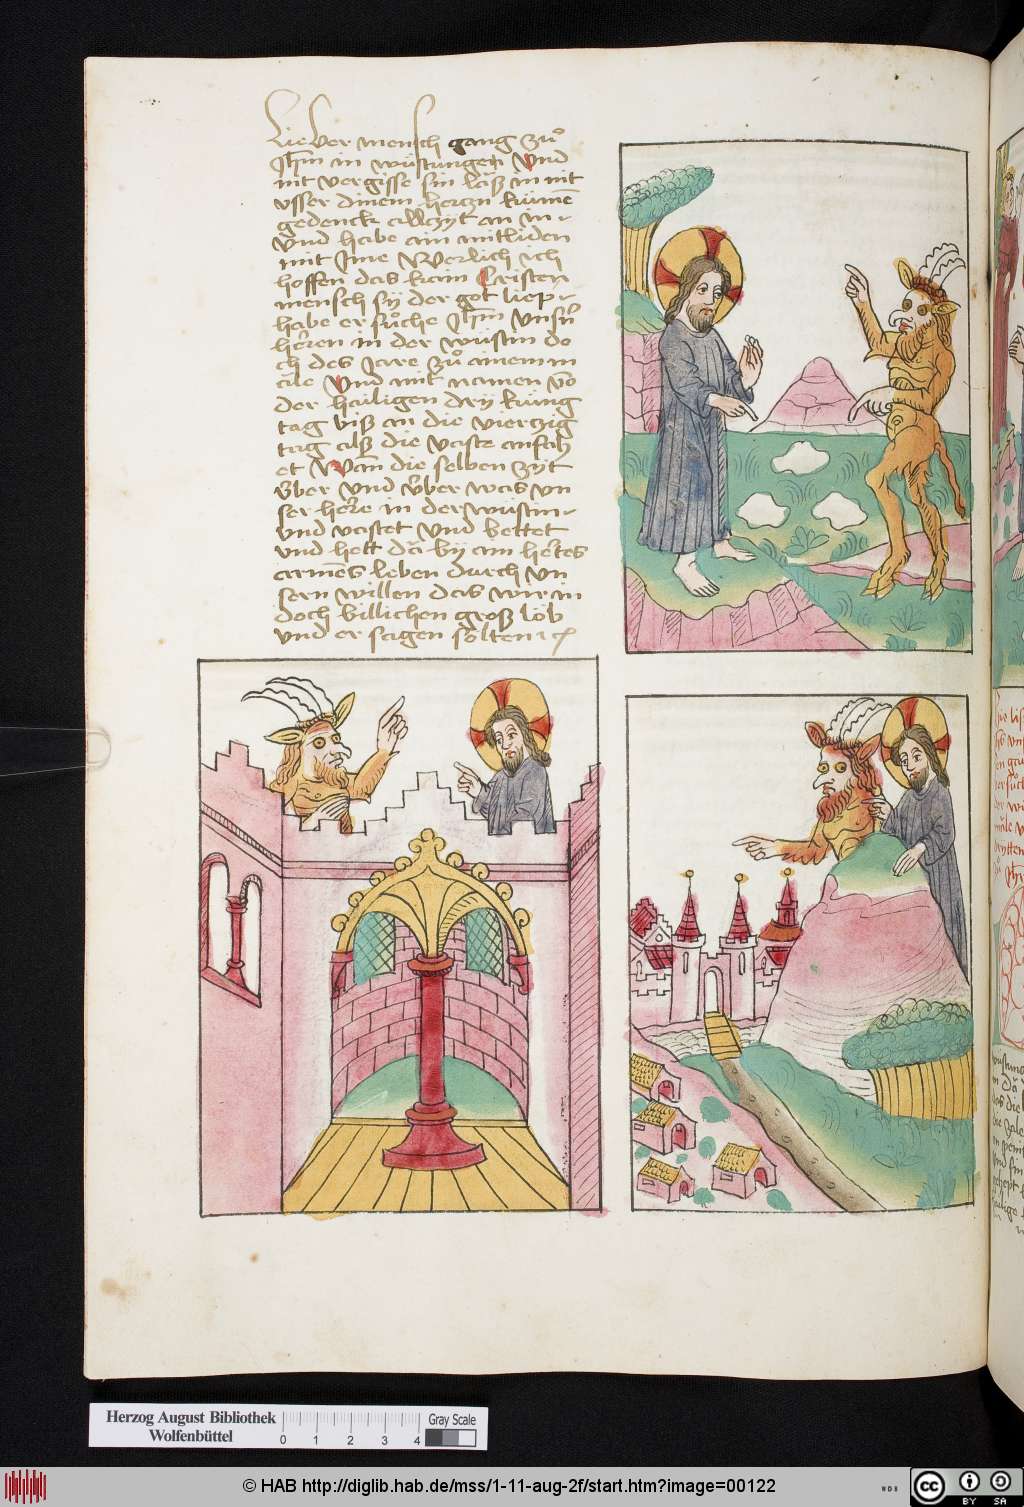 Lieber mensch gang zuͦ
Jhm̄ in wüstungen Vnd
nit vergisse sin laß in nit
vsser dinem hertzn kümē
gedenck allzyt an in
Vnd habe ain mitliden
mit Jme Werlich ich
hoffen das kain Cristen
mensch sÿ der got liep
habe er suͦche Jhm̄ Vnsn̄
heren in der wüstin do
ch des Jare zuͦ ainem m
ale Vnd mit namen vō
der hailigen dry küng
tag biß an die vierzig
tag alß die vaste anfah
et Wan̄ die selben zyt
über Vnd über was vn
ser here in der wüstin
vnd vastet Vnd bettet
vnd hett da by ain hertes
armes leben durch vn
sern willen das wir im
doch billichen groß lob
vnd er sagen sölten
Herzog August Bibliothek
Wolfenbüttel
0 1 2 3 4
Gray Scale
© HAB http://diglib.hab.de/mss/1-11-aug-2f/start.htm?image=00122
WDB
CC BY SA